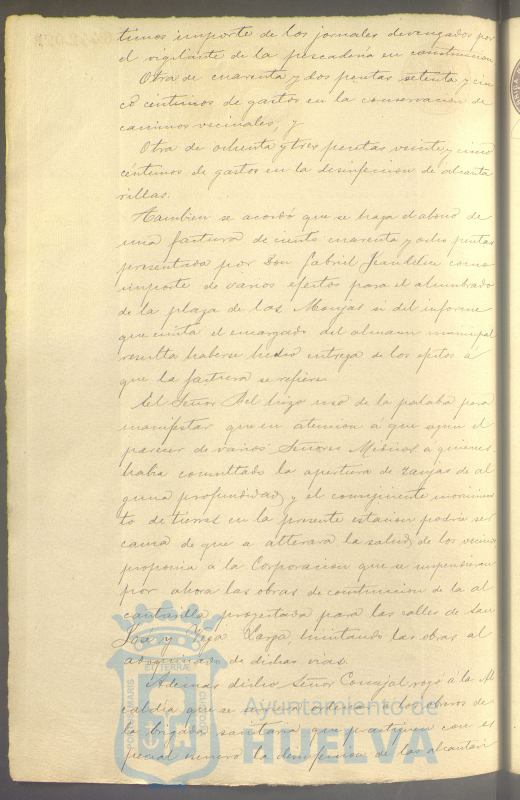 timos importe de los jornales devengados por
el vigilante de la pescaderia en construcion
Otra de cuarenta y dos pesetas setenta y cin
co centimos de gastos en la conservacion de
caminos vecinales; y
Otra de ochenta y tres pesetas veinte y cinco
céntimos de gastos en la desinfeccion de alcanta
rillas.
Tambien se acordó que se haga el abono de
una factura de ciento cuarenta y ocho pesetas
presentada por Don Gabriel como
importe de varios efectos para el alumbrado
de la plaza de las Monjas si del informe
que emita el encargado del almacen municipal
resulta haberse hecho entrega de los efectos a
que la factura se refiere
El Señor hizo uso de la palabra para
manifestar que en atencion á que segun el
parecer de varios Señores Médicos á quienes
habia consultado la apertura de zanjas de al
guna profundidad, y el consiguiente movimien
to de tierras en la presente estacion podria ser
causa de que a alterara la salud de los vecinos
proponia á la Corporacion que se suspendieran
por ahora las obras de construccion de la al
cantarilla proyectada para las calles de San
José y Vega Larga limitando las obras al
adoquinado de dichas vias.
Ademas dicho Señor Concejal rogó á la Al
caldia que se sirviera ordenar á los obreros de
la brigada sanitaria que practiquen con es
pecial esmero la desinfeccion de las alcantari
Ayuntamiento de
HUELVA